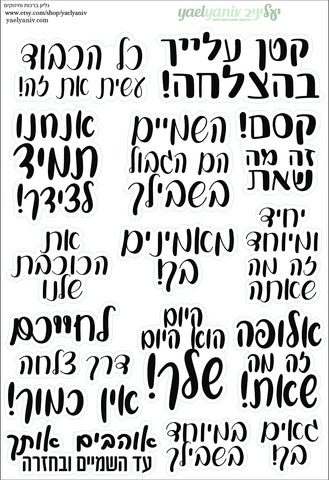 גליון ברכות וחיזוקים
www.etsy.com/shop/yaelyaniv
yaelyaniv.com
יעליניב yaelyaniv
קטן עלייך
בהצלחה!
כל הכבוד
עשית את זה!
קסם!
זה מה
שאת
השמיים
הם הגבול
בשבילך
אנחנו
תמיד
לצידך!
יחיד
ומיוחד
זה מה
שאתה
מאמינים
בך!
את
הכוכבת
שלנו
אלופה
זה מה
שאת!
היום
הוא היום
שלך!
לחייכם
דרך צלחה
אין כמוך!
גאים במיוחד
בך! בשבילך
אוהבים אותך
עד השמיים ובחזרה